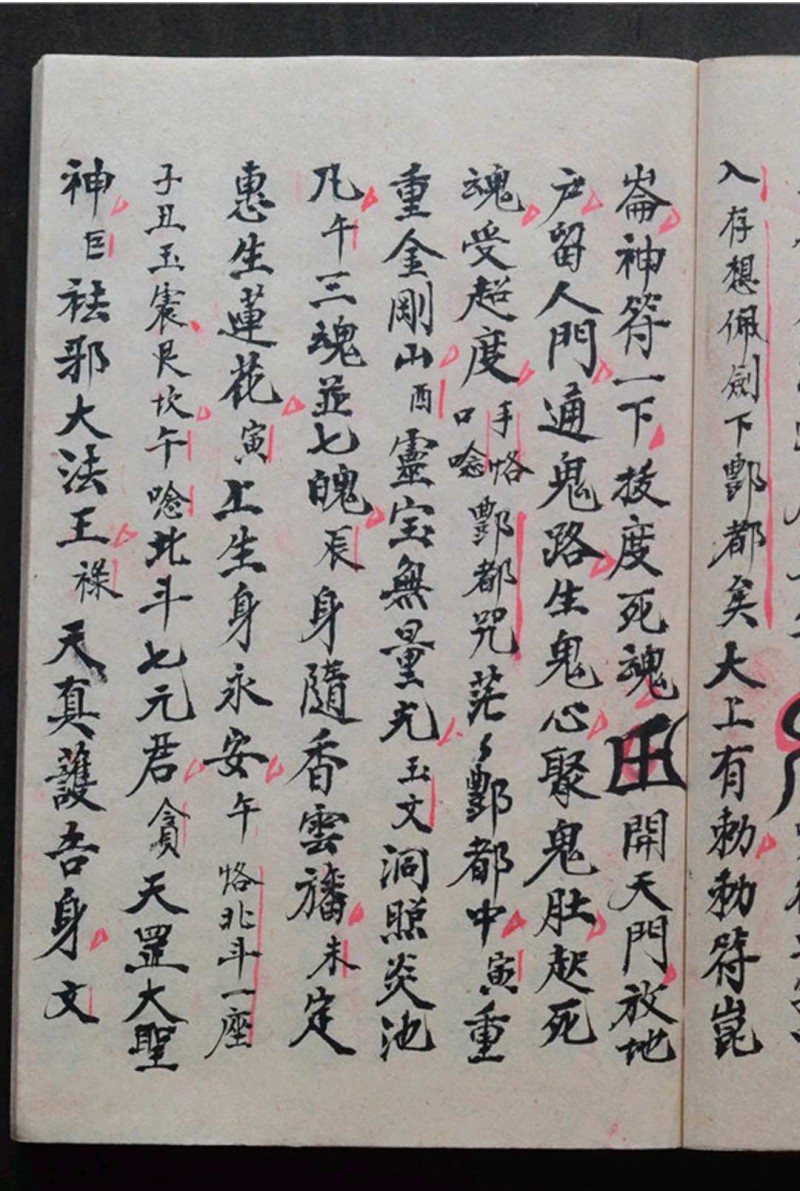 入存想佩劍下酆都矣大上有勅勅符崑
崙神符一下拔度死魂 開天門放地
户留人門通鬼路生鬼心聚鬼肚起死
魂受超度手恪口唸酆都咒茫々酆都中寅重
重金剛山酉靈宝無量光玉文洞照炎池
凡午三魂並七魄辰身隨香雲旛未定
惠生蓮花寅上生身永安午恪北斗一座
子丑玉宸艮坎午唸北斗七元君貪天罡大聖
神巨祛邪大法王禄天真護吾身文